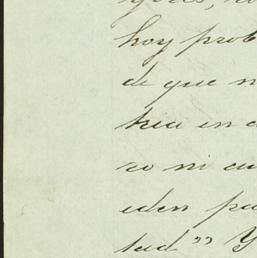 hoy prob
de que n
tria en
ro ni cu
eden pa
tad" Y